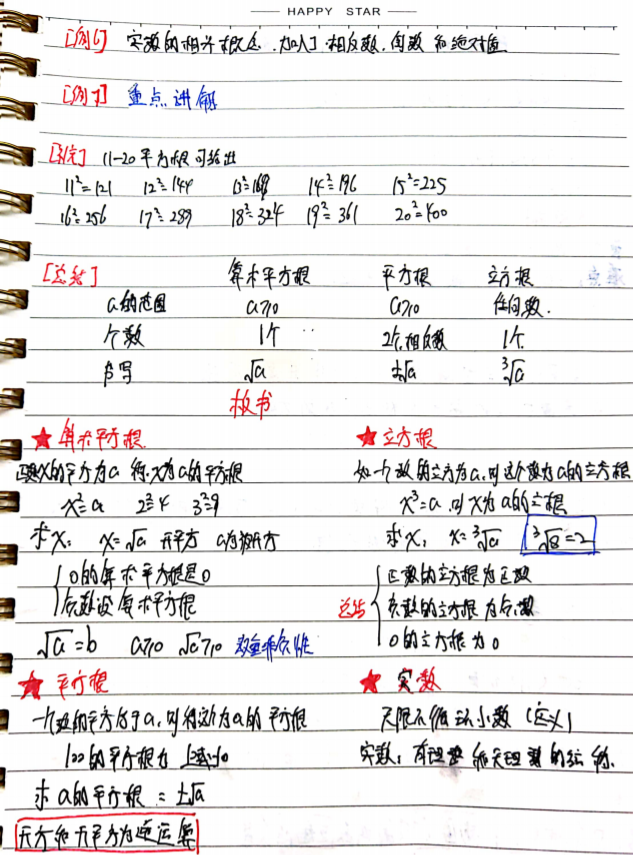 HAPPY STAR
[例6] 实数的相关概念.加入了相反数.倒数和绝对值
[例7] 重点讲解
[补充] 11-20平方根可给出
11²=121 12²=144 13²=169 14²=196 15²=225
16²=256 17²=289 18²=324 19²=361 20²=400
[总结] 算术平方根 平方根 立方根
a的范围 a≥0 a≥0 任何数.
个数 1个 2个,相反数 1个
书写 √a ±√a ³√a
板书
★算术平方根
正数X的平方为a 称,X为a的平方根
x²=a 2²=4 3²=9
求X: X=√a 开平方 a为被开方
0的算术平方根是0
负数没算术平方根
√a=b a≥0 √a≥0 双重非负性
★平方根
一个数的平方等于a,则称这个为a的平方根
100的平方根为
求a的平方根=±√a
开方和开平方为逆运算
★立方根
如一个数的立方为a,则这个数为a的立方根
x³=a,则X为a的立根
求X: X=³√a ³√8=2
总结
正数的立方根为正数
负数的立方根为负数
0的立方根为0
★实数
无限不循环小数(定义)
实数:有理数和无理数的统称.